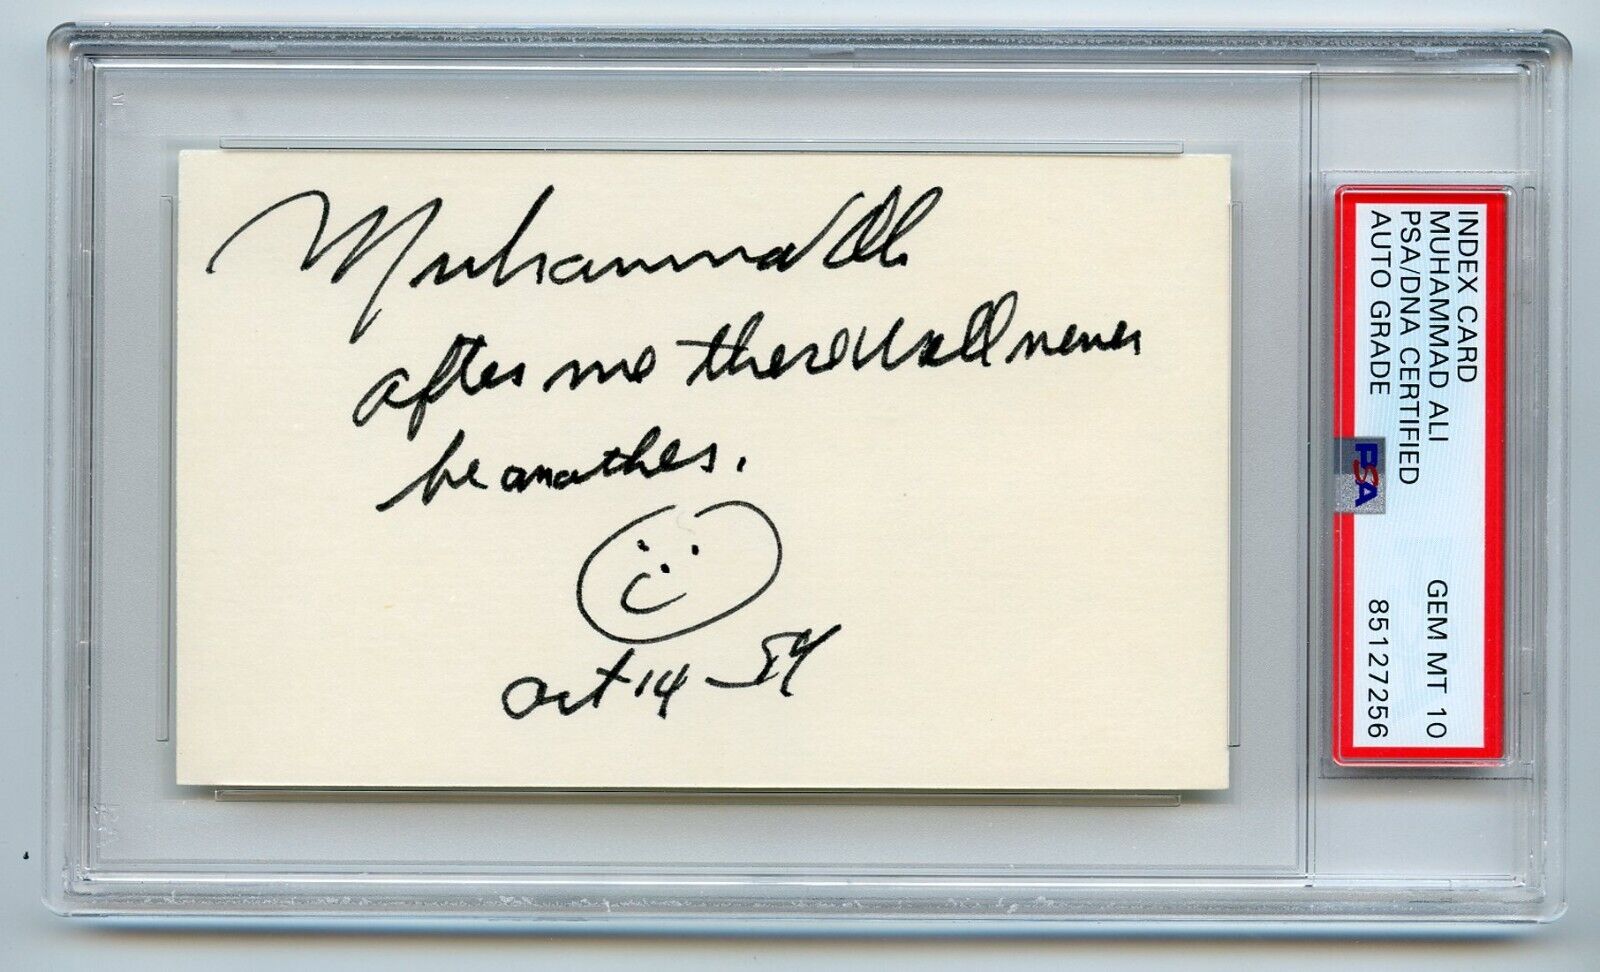 Muhammad Ali
after me there will never
be another.
Oct 14-84
INDEX CARD
MUHAMMAD ALI
PSA/DNA CERTIFIED
AUTO GRADE
GEM MT 10
85127256
PSA